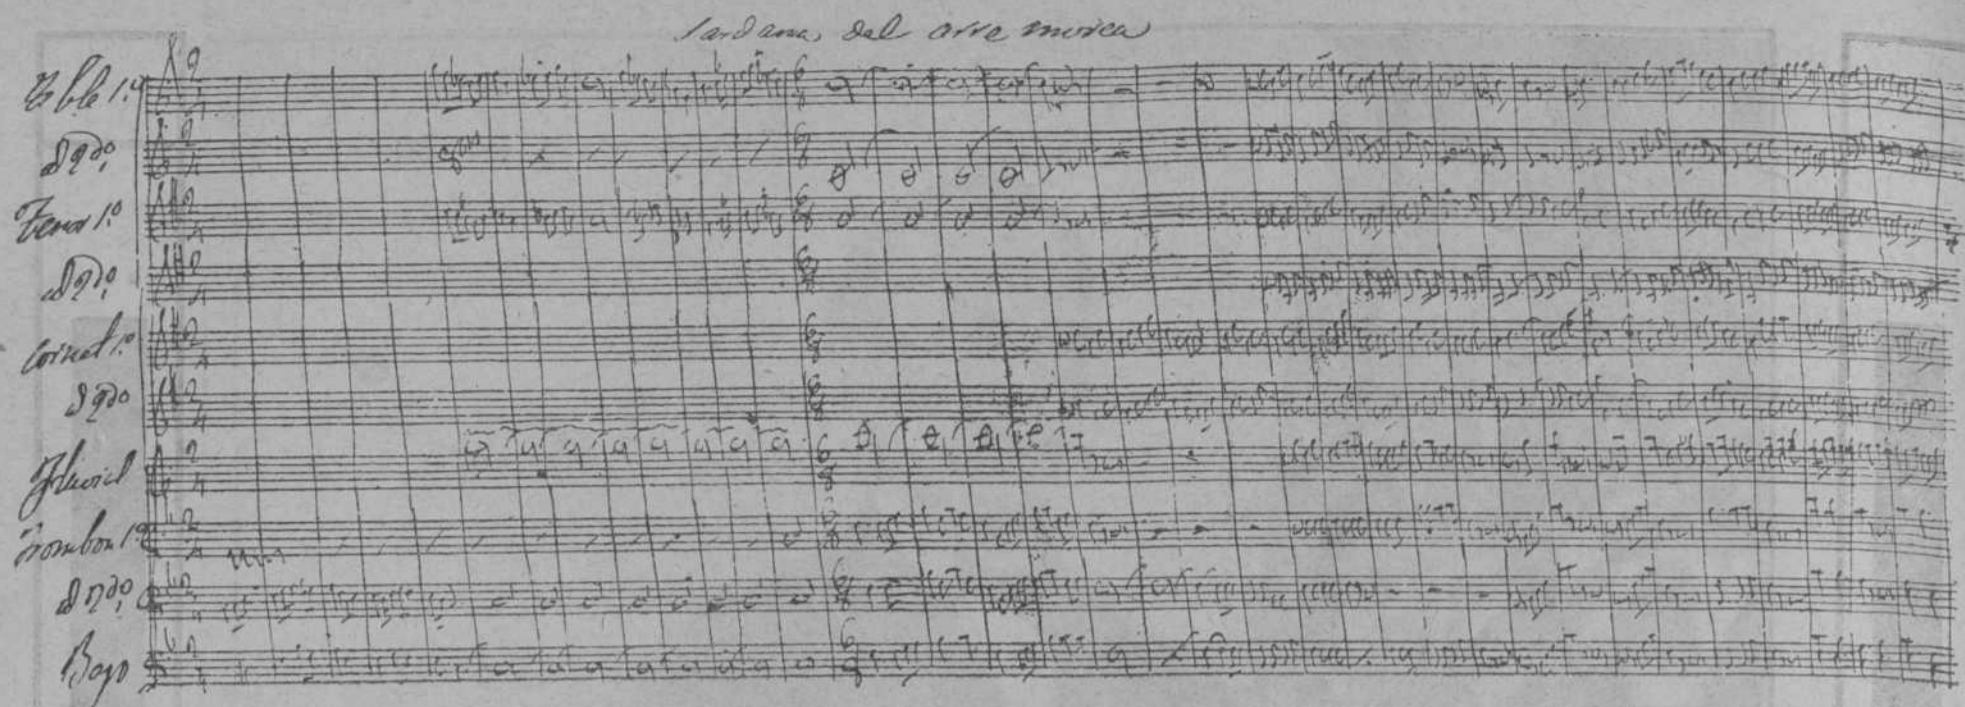 Sardana, del arre moica
Tible 1.º
2.do
Tenor 1.º
2.do
Cornet 1.º
2.do
Fluviol
Trombon 1.º
2.do
Bajo